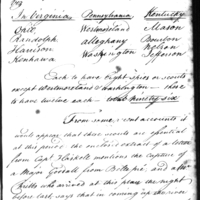 In Virginia Pennsylvania Kentucky
Ohio Westmoreland Mason
Randolph Alleghany Bourbon
Harrison Washington Nelson
Kenhawa Jefferson
Each to have eight spies or scouts
except Westmoreland & Washington - those
to have twelve each - total ninety six
From some recent accounts it
would appear that these scouts are essential
at this period the enclosed extract of a letter
from Capt Haskell mentions the capture
of a Major Goodall from Belle pre, and also
Butts who arrived at this place the night
before last says that in coming up the river